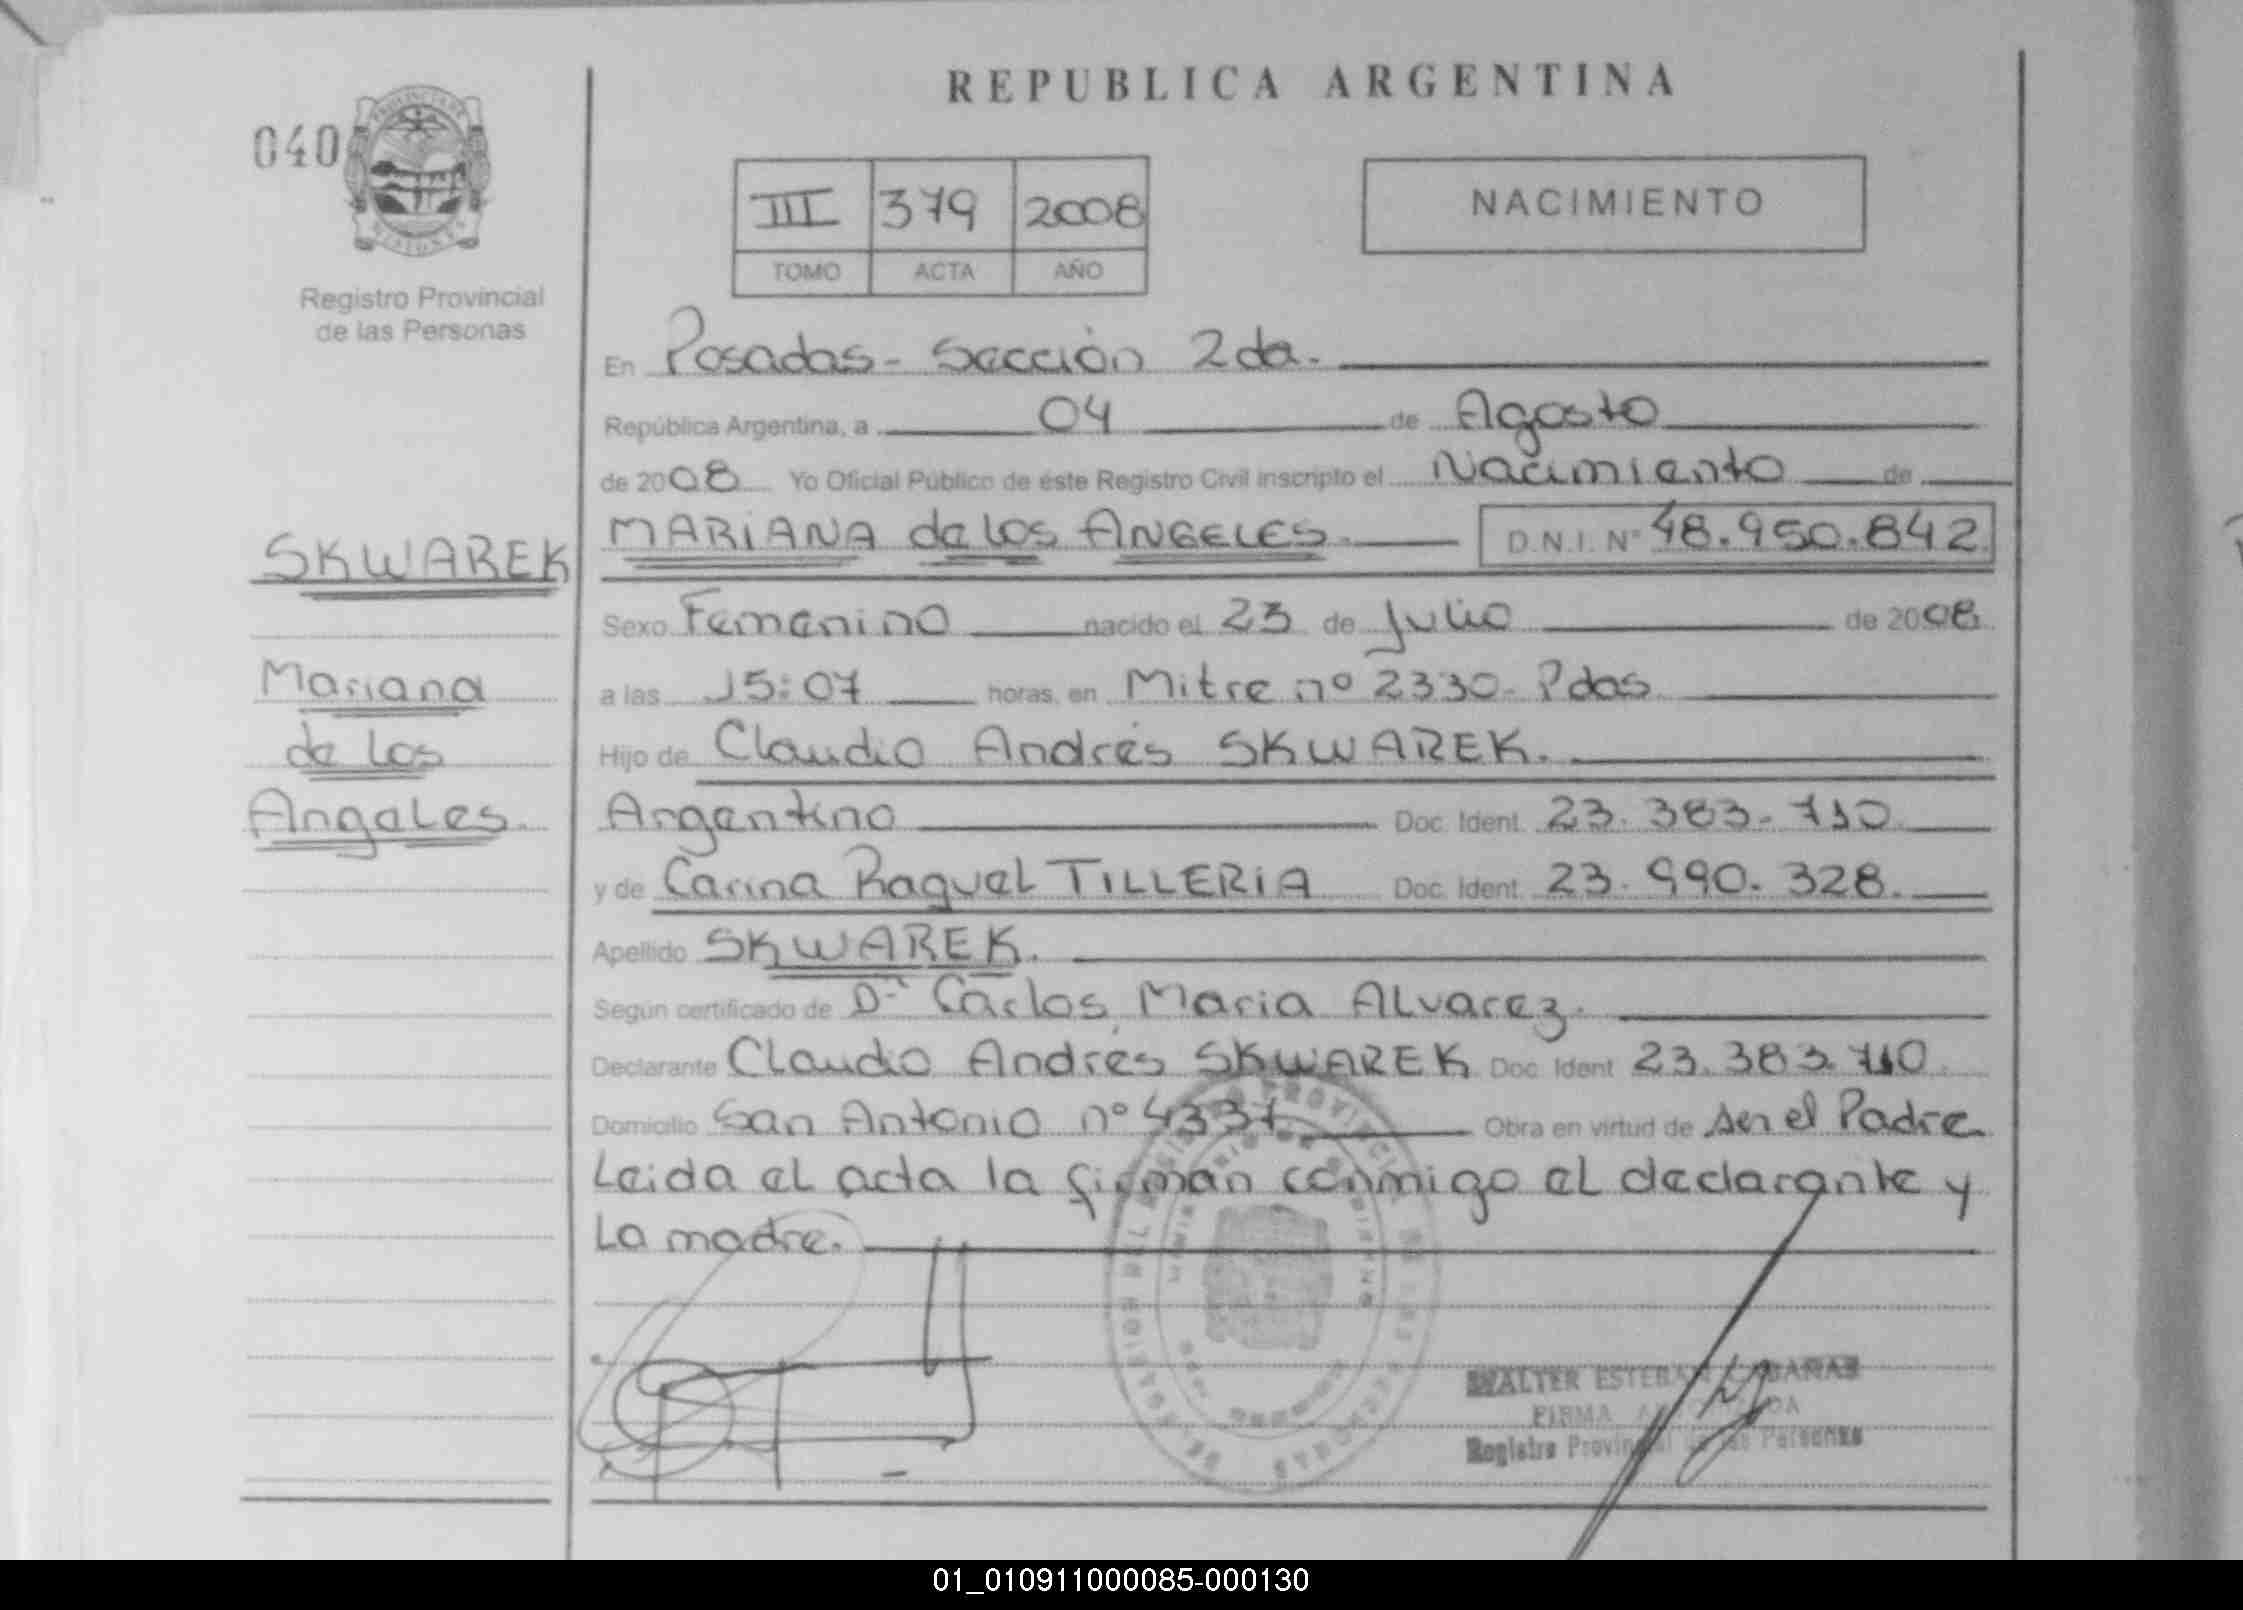 REPUBLICA ARGENTINA
040
PROVINCIA DE MISIONES
Registro Provincial
de las Personas
III 379 2008
TOMO ACTA AÑO
NACIMIENTO
En Posadas - Sección 2da.
República Argentina, a 04 de Agosto
de 2008 Yo Oficial Público de éste Registro Civil inscripto el Nacimiento de
SKWAREK
Mariana
de Los
Angeles.
MARIANA de Los ANGELES. D.N.I. Nº 48.950.842
Sexo Femenino nacido el 23 de Julio de 2008
a las 15:07 horas, en Mitre nº 2330 - Pdas
Hijo de Claudio Andrés SKWAREK.
Argentino Doc. Ident. 23.383.710
y de Carina Raquel TILLERIA Doc. Ident. 23.990.328.
Apellido SKWAREK.
Según certificado de Dr Carlos Maria Alvarez.
Declarante Claudio Andrés SKWAREK Doc. Ident 23.383.710
Domicilio San Antonio nº 4337 Obra en virtud de ser el Padre
Leida el acta la firman conmigo el declarante y
La madre.
WALTER ESTEBAN CABAÑAS
FIRMA AUTORIZADA
Registro Provincial de las Personas
01_010911000085-000130